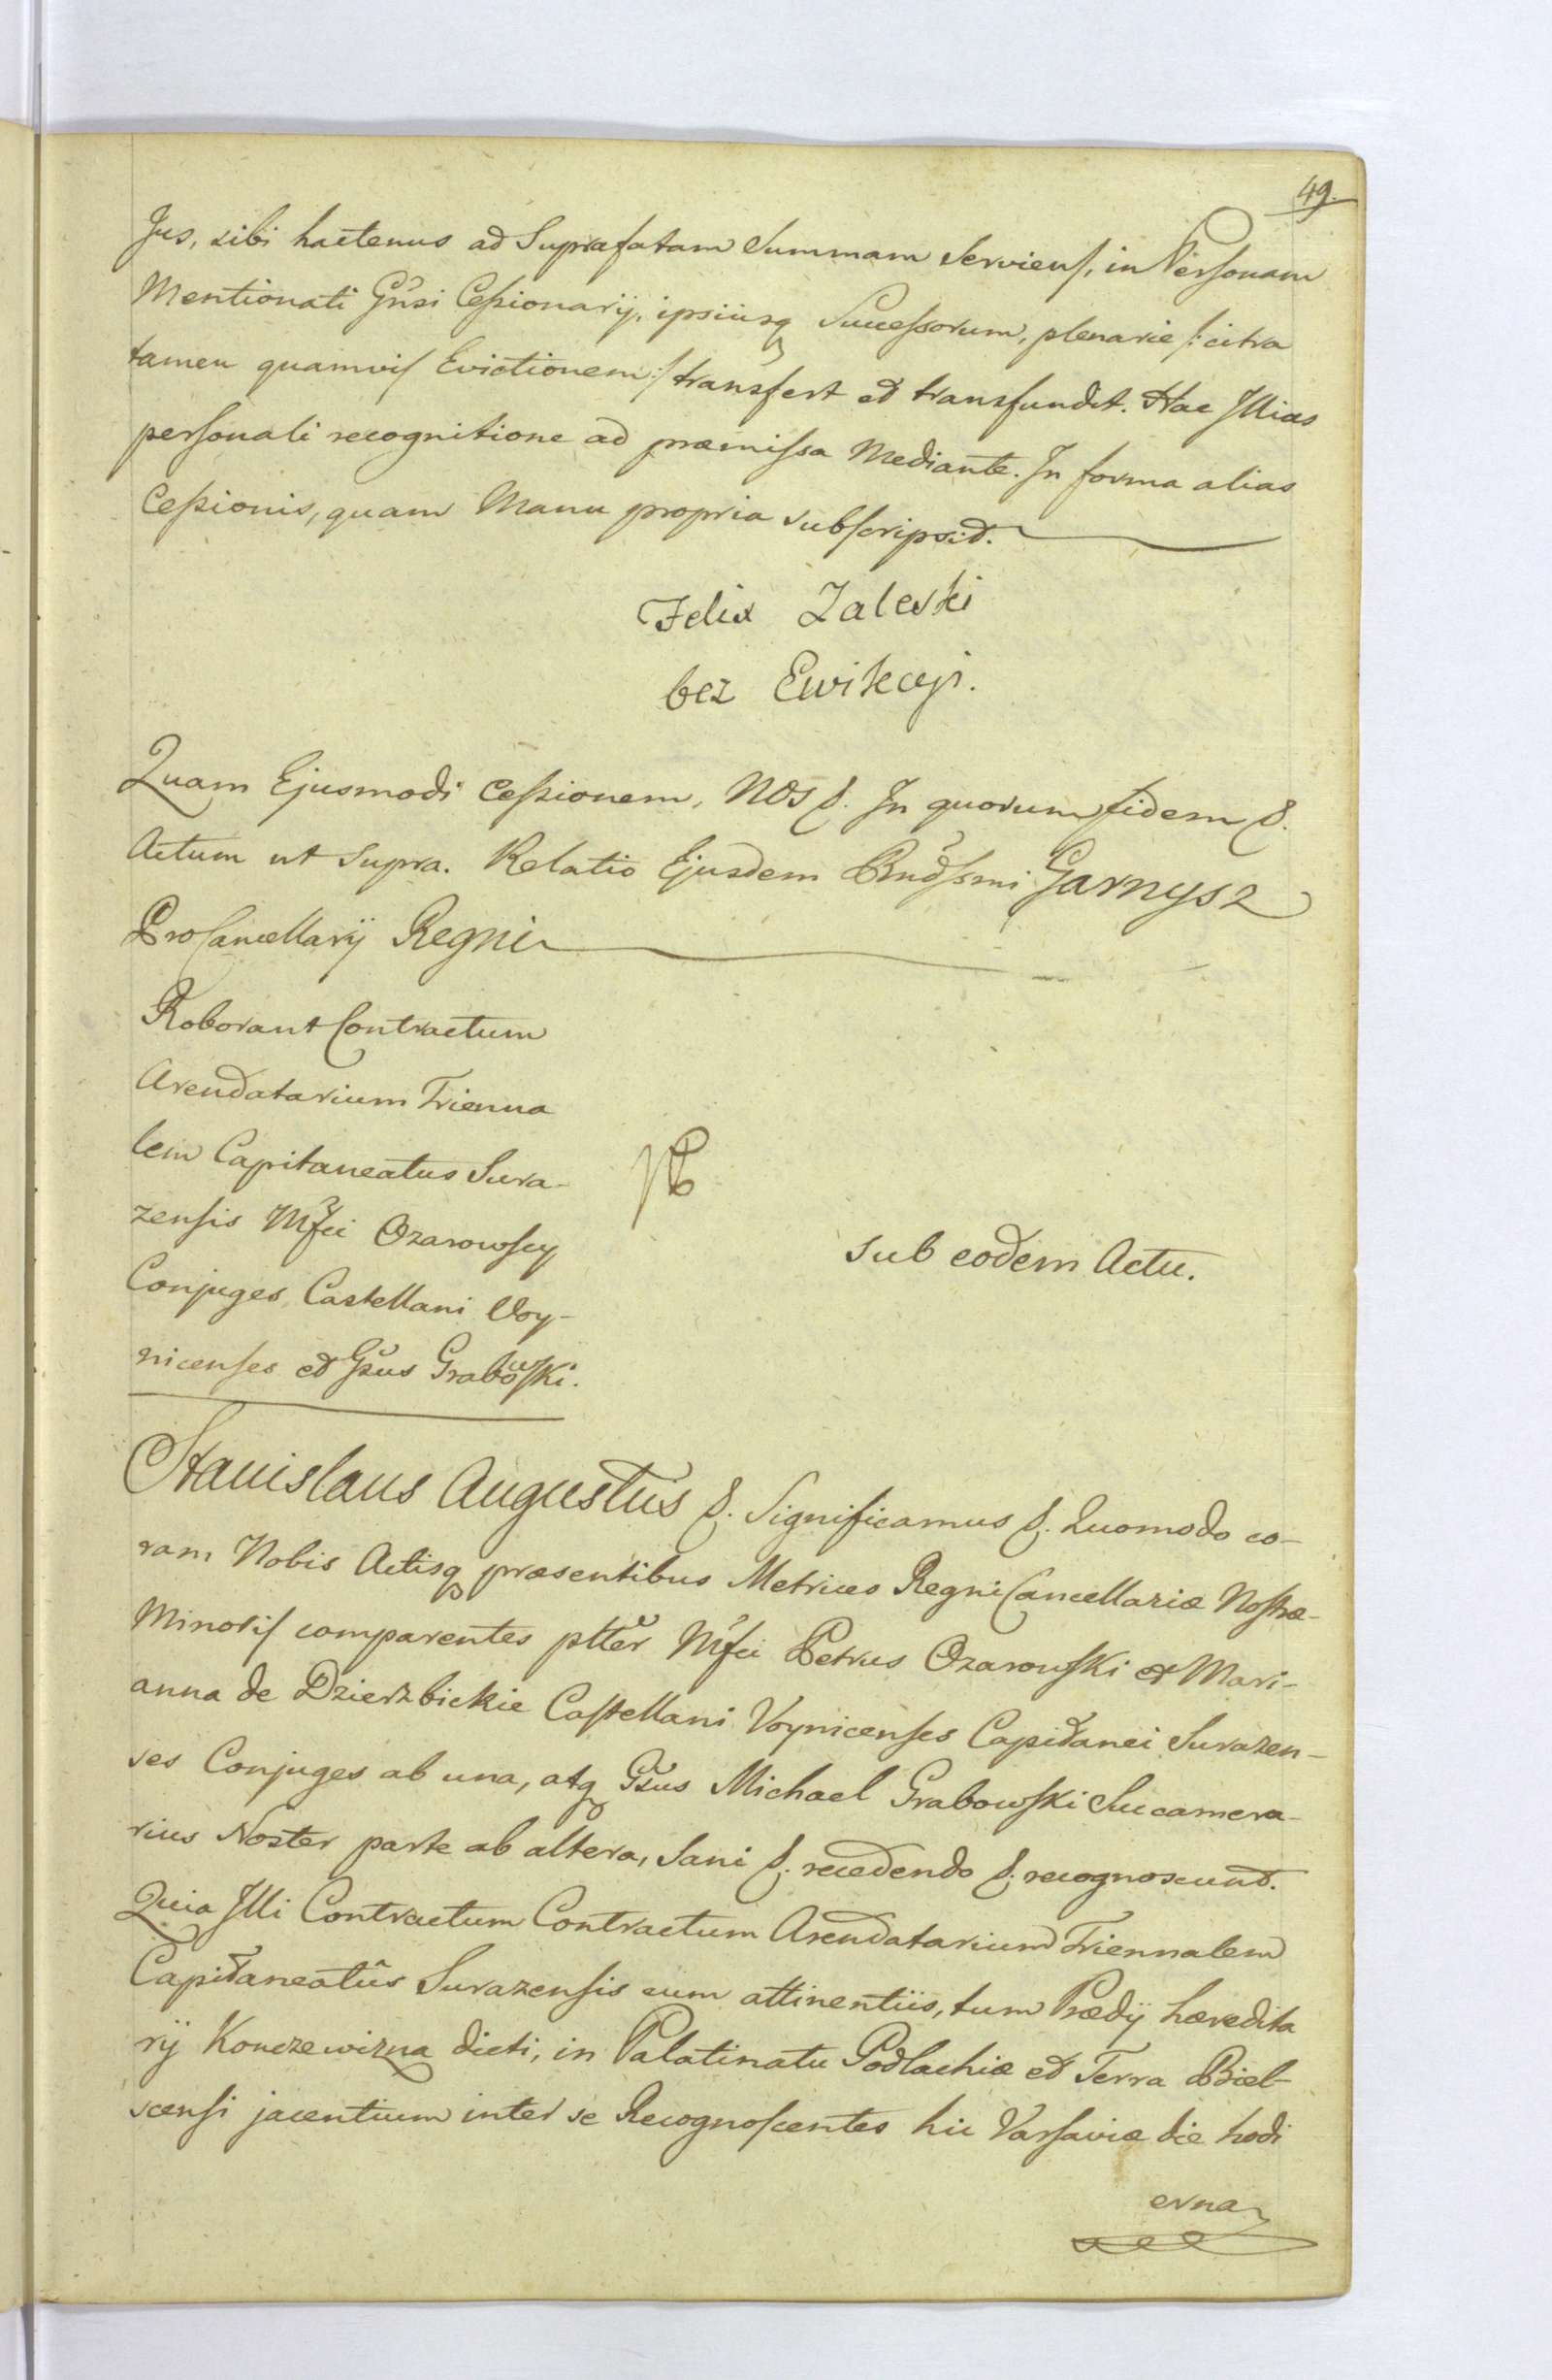 49.
Jus, sibi hactenus ad Suprafatam Summam Serviens, in Personam
Mentionati Gnsi Cessionarij, ipsiusq Successorum, plenarie /: citra
tamen quamvis Evictionem :/ transfert et transfundit. Hac Illius
personali recognitione ad præmissa Mediante. In forma alias
Cessionis, quam Manu propria subscripsit.
Felix Zaleski
bez Ewikcyi.
Quam Ejusmodi Cessionem, NOS &. In quorum fidem &.
Actum ut Supra. Relatio Ejusdem Rndssmi Garnysz
ProCancellarij Regni
Roborant Contractum
Arendatarium Trienna
lem Capitaneatus Sura-
zensis Mfci Ozarowscy
Conjuges Castellani Voy-
nicenses et Gsus Grabowski.
Sub eodem Actu.
Stanislaus Augustus &. Significamus &. Quomodo co-
ram Nobis Actisq præsentibus Metrices Regni Cancellariæ Nostræ
Minoris comparentes pltter Mfci Petrus Ozarowski et Mari-
anna de Dzierzbickie Castellani Voynicenses Capitanei Surazen-
ses Conjuges ab una, atq Gsus Michael Grabowski Succamera-
rius Noster parte ab altera, Sani &. recedendo &. recognoscunt.
Quia Illi Contractum Contractum Arendatarium Triennalem
Capitaneatûs Surazensis cum attinentiis, tum Prædij hæredita
rij Konczewizna dicti, in Palatinatu Podlachiæ et Terra Biel-
scensi jacentium inter se Recognoscentes hic Varsaviæ die hodi
erna